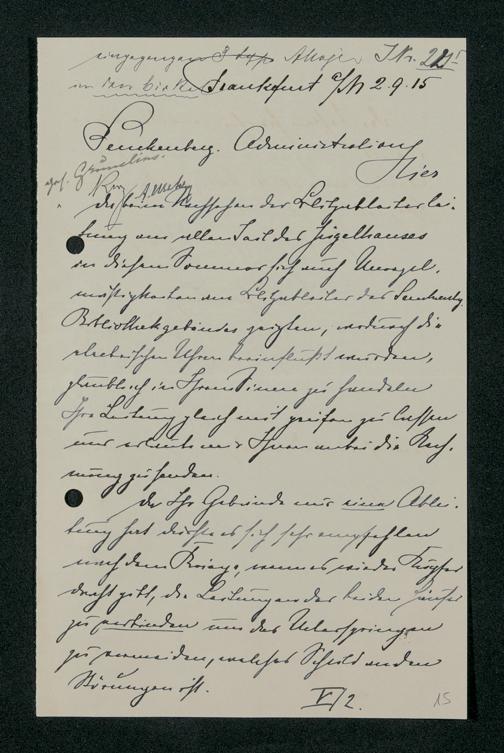 eingegangen
Frankfurt a/M 2.9.15
Senckenberg. Administration
Hier
Da beim Nachsehen der Blitzableiterlei-
tung am alten Teil des Hauses
in diesem Sommer sich auch Unregel-
mässigkeiten am Blitzableiter des Senckenbg.
Bibliothekgebäudes zeigten, wodurch die
elektrischen Uhren beeinflußt wurden,
glaubte ich in Ihrem Sinne zu handeln
Ihre Leitung gleich mit prüfen zu lassen
und erlaube mir Ihnen anbei die Rech-
nung zu senden.
Da Ihr Gebäude nur eine Ablei-
tung hat dürfte es sich sehr empfehlen
nach dem Kriege, wenn es wieder Kupfer
draht gibt, die Leitungen der beiden Häuser
zu verbinden um das Ueberspringen
zu vermeiden, welches Schuld an den
Störungen ist.
V/2.
15